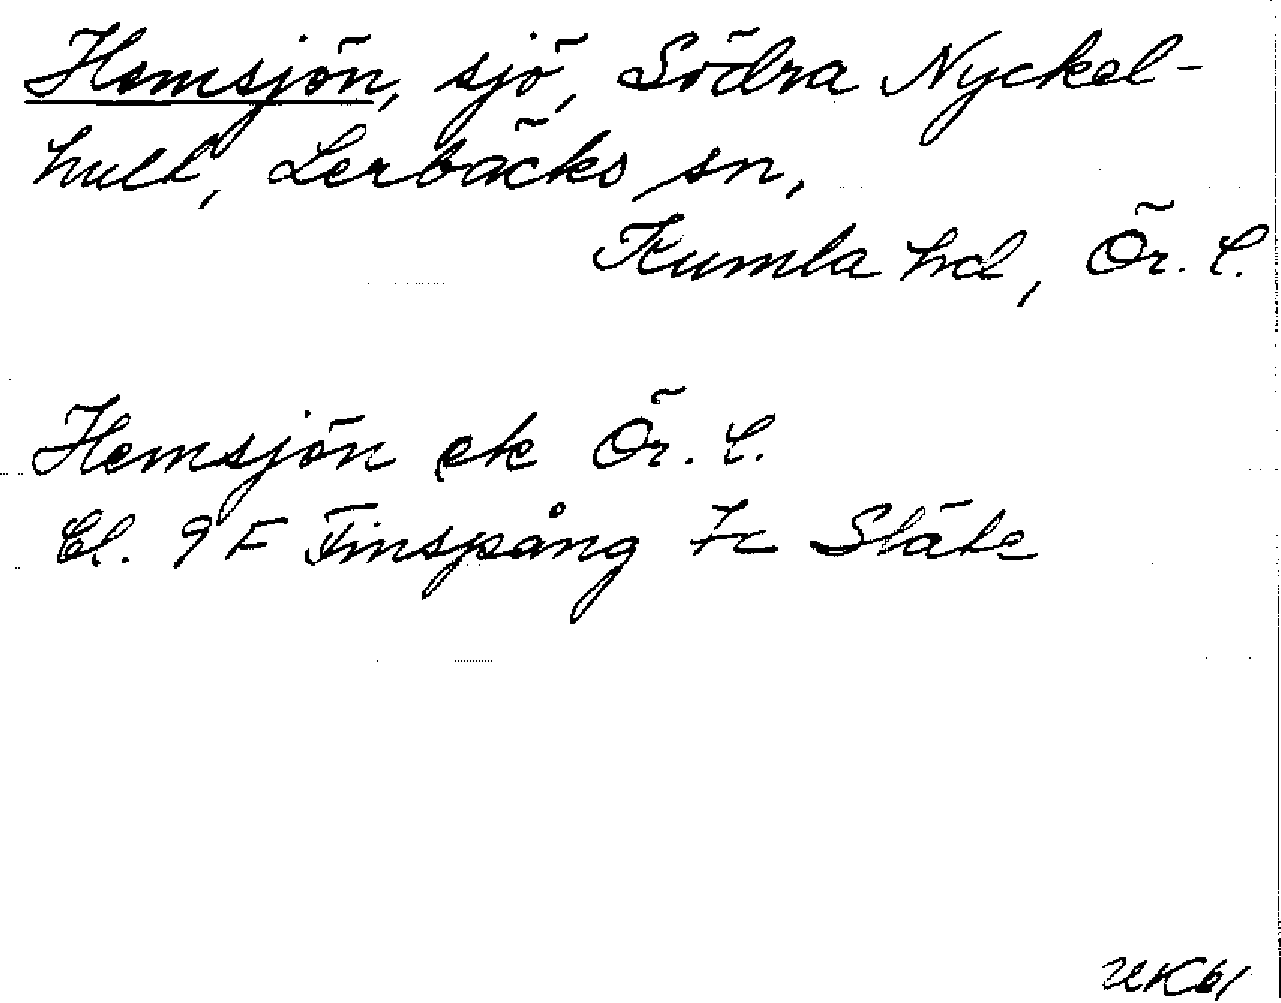 Hemsjön, sjö, Södra Nyckel-
hult, Lerbäcks sn,
Kumla hd, Ör. l.
Hemsjön ek Ör. l.
Bl. 9 F Finspång 7c Släte
UK61